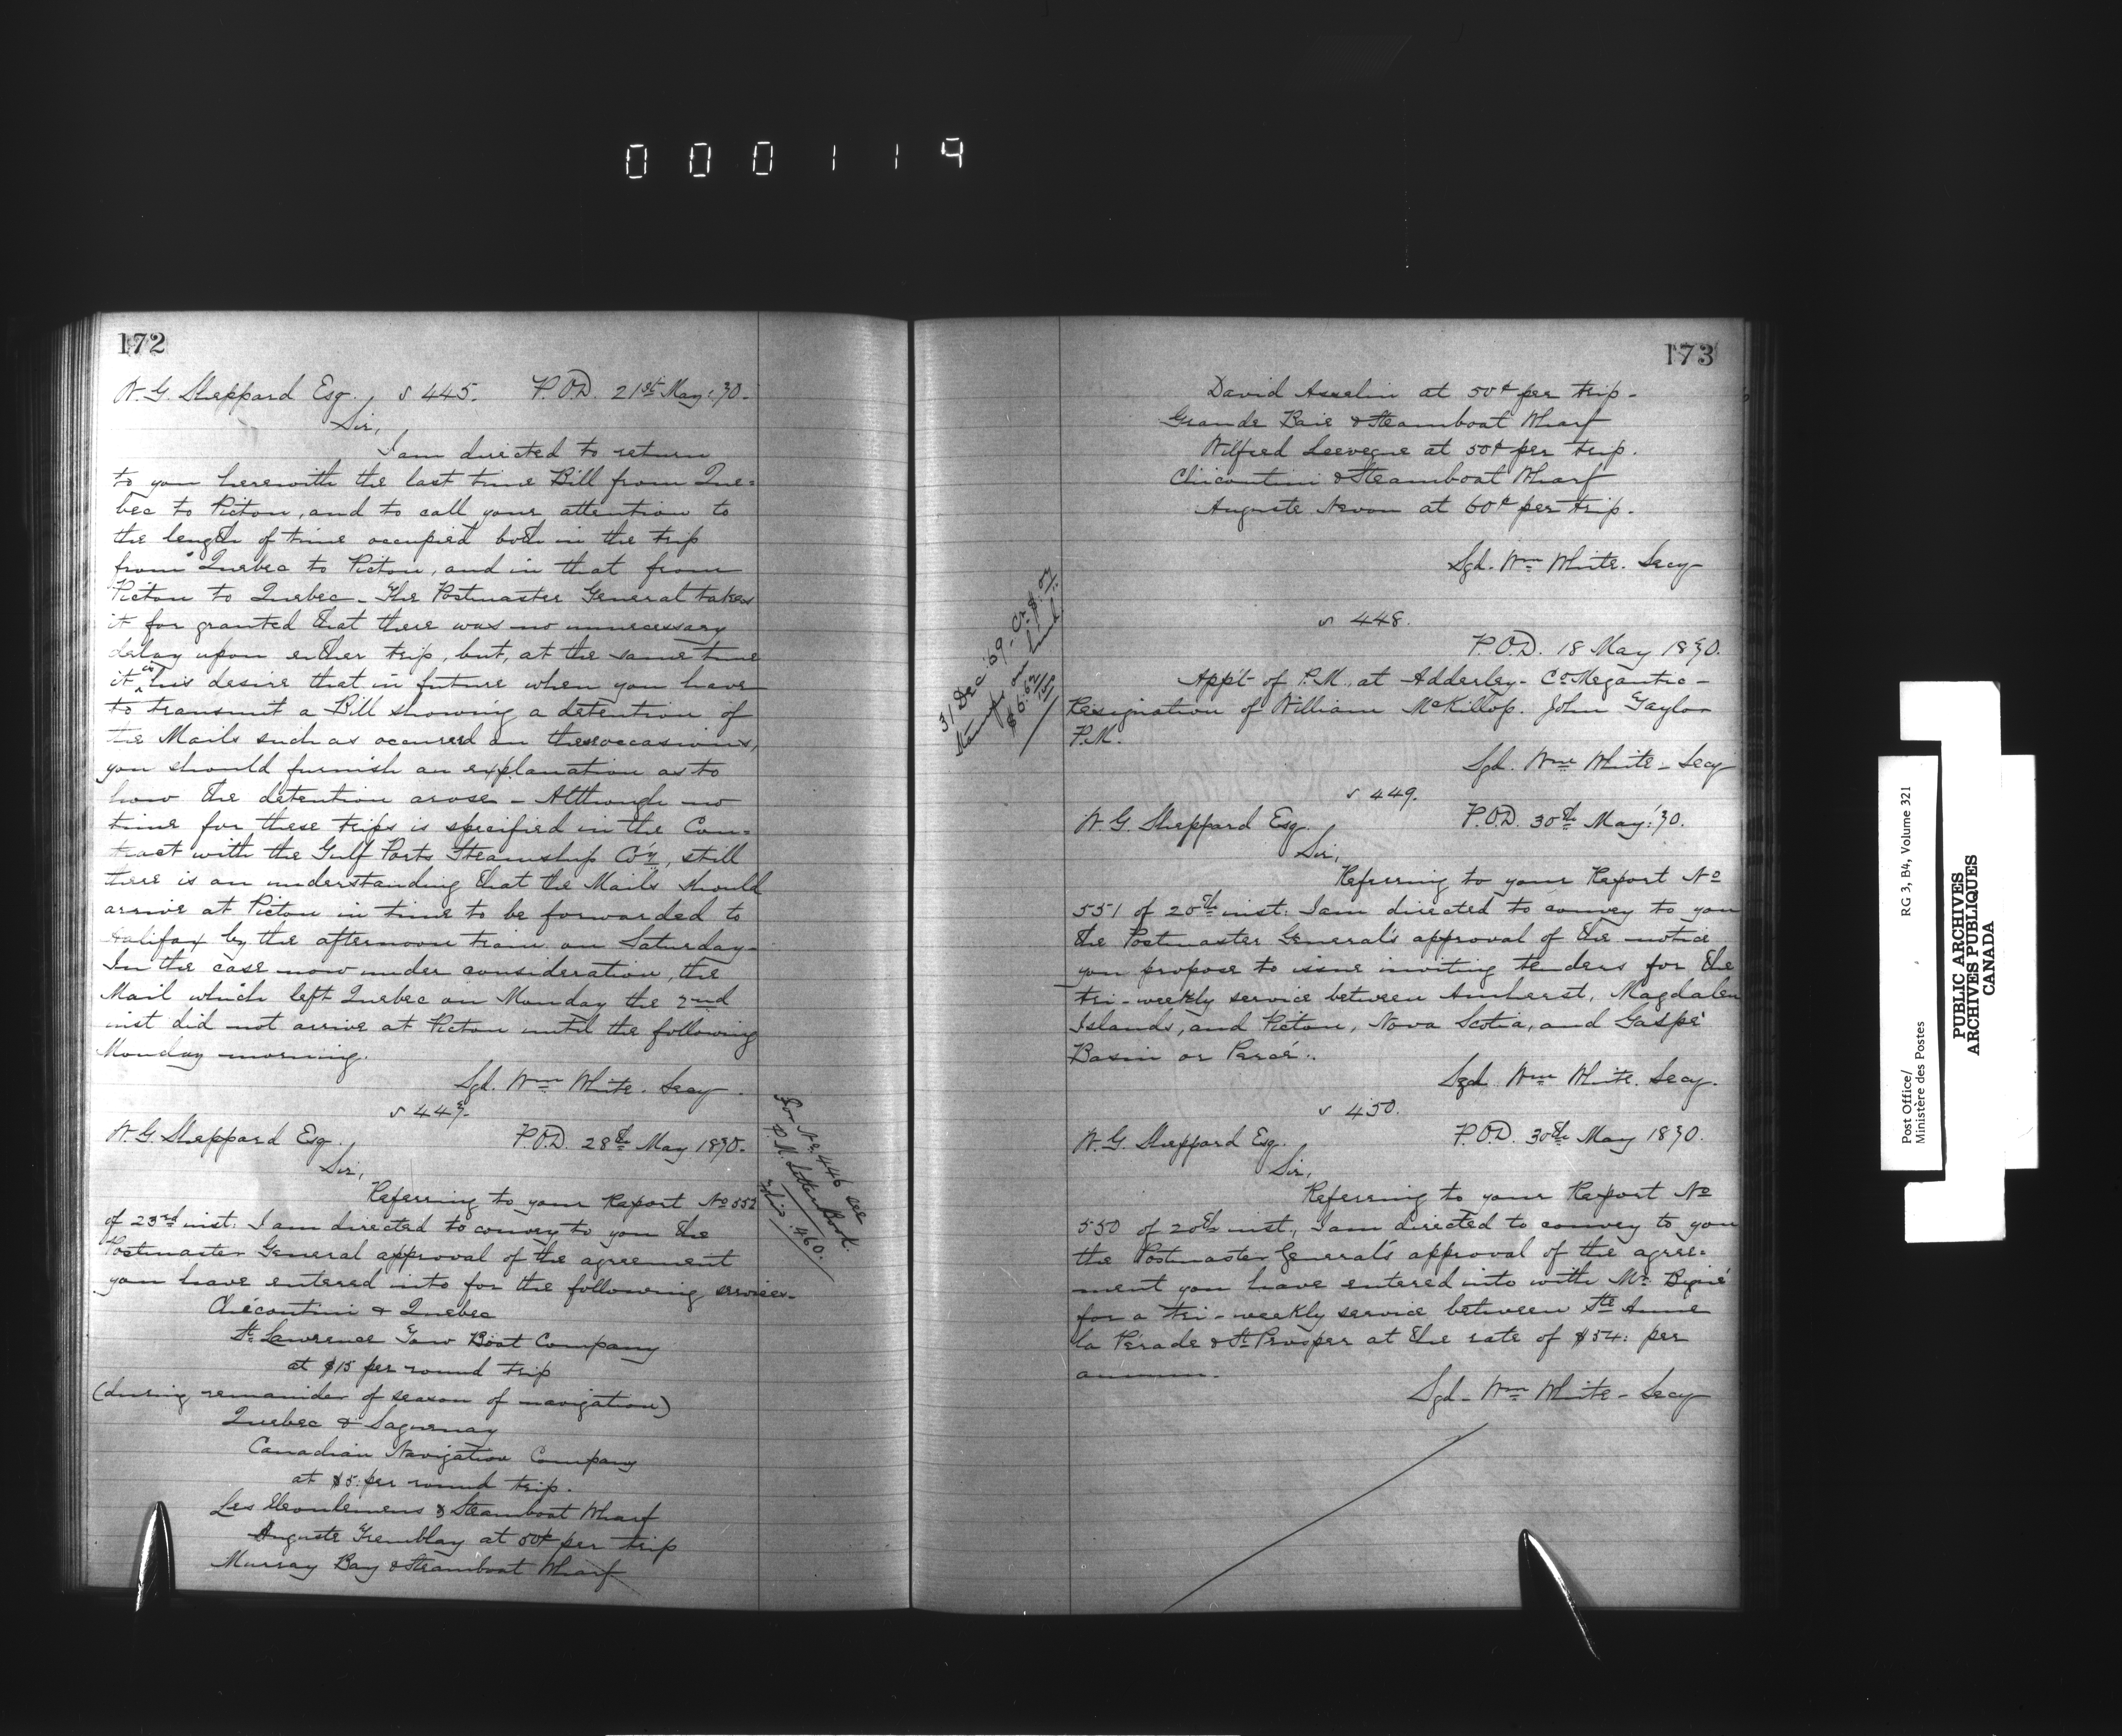 000119
172
W. G. Sheppard Esq., 445. P.O.D. 21st May '70.
Sir,
I am directed to return
to you herewith the last time Bill from Que=
bec to Pictou, and to call your attention to
the length of time occupied both in the trip
from Quebec to Pictou, and in that from
Pictou to Quebec - The Postmaster General takes
it for granted that there was no unnecessary
delay upon either trip, but, at the same time
it is his desire that in future when you have
to transmit a Bill showing a detention of
the Mails such as occurred on these occasions,
you should furnish an explanation as to
how the detention arose - Although no
time for these trips is specified in the Con=
tract with the Gulf Ports Steamship Co'y, still
there is an understanding that the Mails should
arrive at Pictou in time to be forwarded to
Halifax by the afternoon train on Saturday -
In the case now under consideration, the
Mail which left Quebec on Monday the 2nd
inst did not arrive at Pictou until the following
Monday morning.
Sgd. Wm White. Secy
447.
W. G. Sheppard Esq., P.O.D. 28th May 1870.
Sir,
Referring to your Report No 552
of 23rd inst: I am directed to convey to you the
Postmaster General approval of the agreement
you have entered into for the following services -
Chicoutimi & Quebec
St Lawrence Tow Boat Company
at $15 per round trip
(during remainder of season of navigation)
Quebec & Saguenay
Canadian Navigation Company
at $5: per round trip.
Les Eboulemens & Steamboat Wharf
Auguste Tremblay at 50¢ per trip
Murray Bay & Steamboat Wharf
For No. 446 see
P.M. Letter Book
folio 460.
173
David Asselin at 50¢ per trip -
Grande Baie & Steamboat Wharf
Wilfred Levevque at 50¢ per trip.
Chicoutimi & Steamboat Wharf
Auguste Nevon at 60¢ per trip.
Sgd. Wm White. Secy
448.
P.O.D. 18 May 1870.
App't of P.M. at Adderley - Co Megantic -
Resignation of William McKillop. John Taylor
P.M.
Sgd. Wm White - Secy
31 Dec '69 - Cr $ .07
Stamps on hand
$6.62
449.
W. G. Sheppard Esq. P.O.D. 30th May '70.
Sir,
Referring to your Report No
551 of 20th inst: I am directed to convey to you
the Postmaster General's approval of the notice
you propose to issue inviting tenders for the
tri-weekly service between Amherst, Magdalen
Islands, and Pictou, Nova Scotia, and Gaspé
Basin or Percé.
Sgd Wm White. Secy.
450.
W. G. Sheppard Esq. P.O.D. 30th May 1870.
Sir,
Referring to your Report No
550 of 20th inst., I am directed to convey to you
the Postmaster General's approval of the agree=
ment you have entered into with Mr.
for a tri-weekly service between Ste Anne
la Pérade & St Prosper at the rate of $54: per
annum.
Sgd - Wm White - Secy
Post Office/ RG 3, B4, Volume 321
Ministère des Postes
PUBLIC ARCHIVES
ARCHIVES PUBLIQUES
CANADA